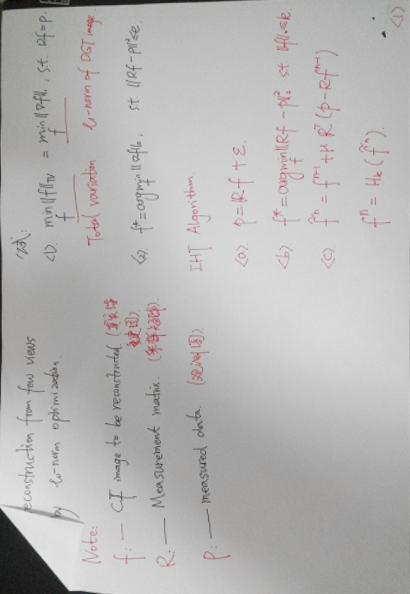 reconstruction from few views
by l₀-norm optimization
Note:
f: — CT image to be reconstructed
R: — Measurement matrix.
P: — measured data.
公式:
<1>. min_f ||f||_TV = min_f ||∇f||₁, s.t. Rf=p.
Total variation l₁-norm of DGT image.
<2>. f* = argmin_f ||∇f||₀, s.t. ||Rf-p||²≤ε.
IHT Algorithm
<a>. p=Rf+ε.
<b>. f* = argmin_f ||Rf-p||²₂ s.t. ||f||₀≤k.
<c> f̃ⁿ = fⁿ⁻¹+μRᵀ(p-Rfⁿ⁻¹)
fⁿ = H_k(f̃ⁿ).
<1>